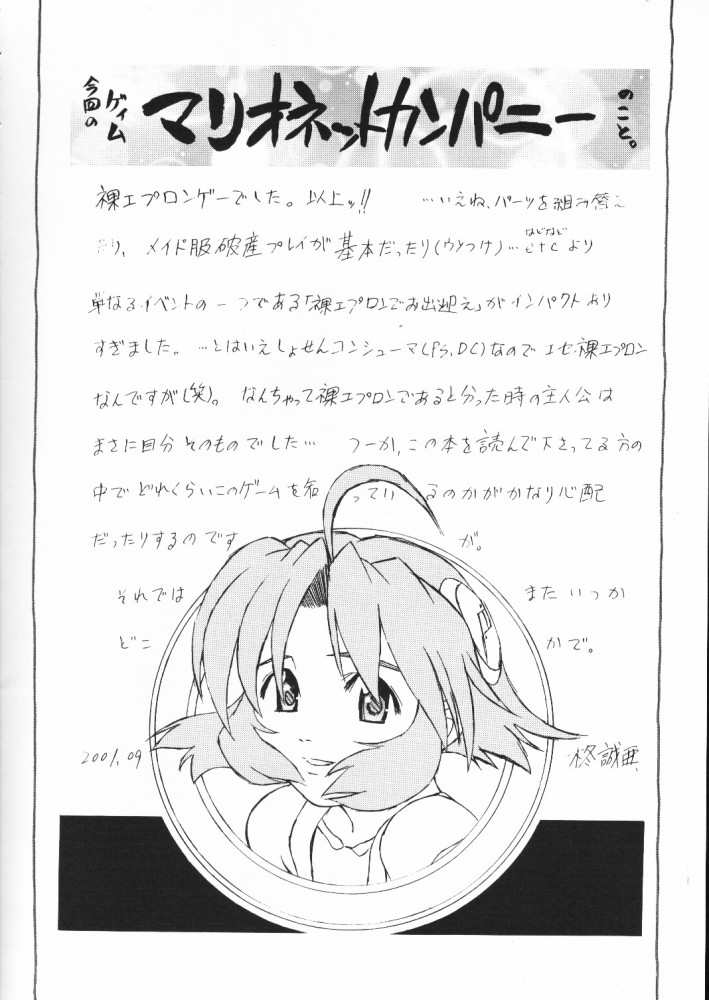 今回の
ゲイム
マリオネットカンパニー
のこと。
裸エプロンゲーでした。以上ッ!! …いえね、パーツを組み替え
たり、メイド服破産プレイが基本だったり(ウソつけ)…etcより
はどなど
単なるイベントの一つである「裸エプロンでお出迎え」がインパクトより
すぎました。…とはいえしょせんコンシューマ(PS,DC)なのでエセ裸エプロン
なんですが(笑)。なんちゃって裸エプロンであると分った時の主人公は
まさに自分そのものでした… つーか、この本を読んで下さってる方の
中でどれくらいこのゲームを知っているのかがかなり心配
だったりするのですが。
それでは またいつか
どこかで。
2001.09 柊誠亜